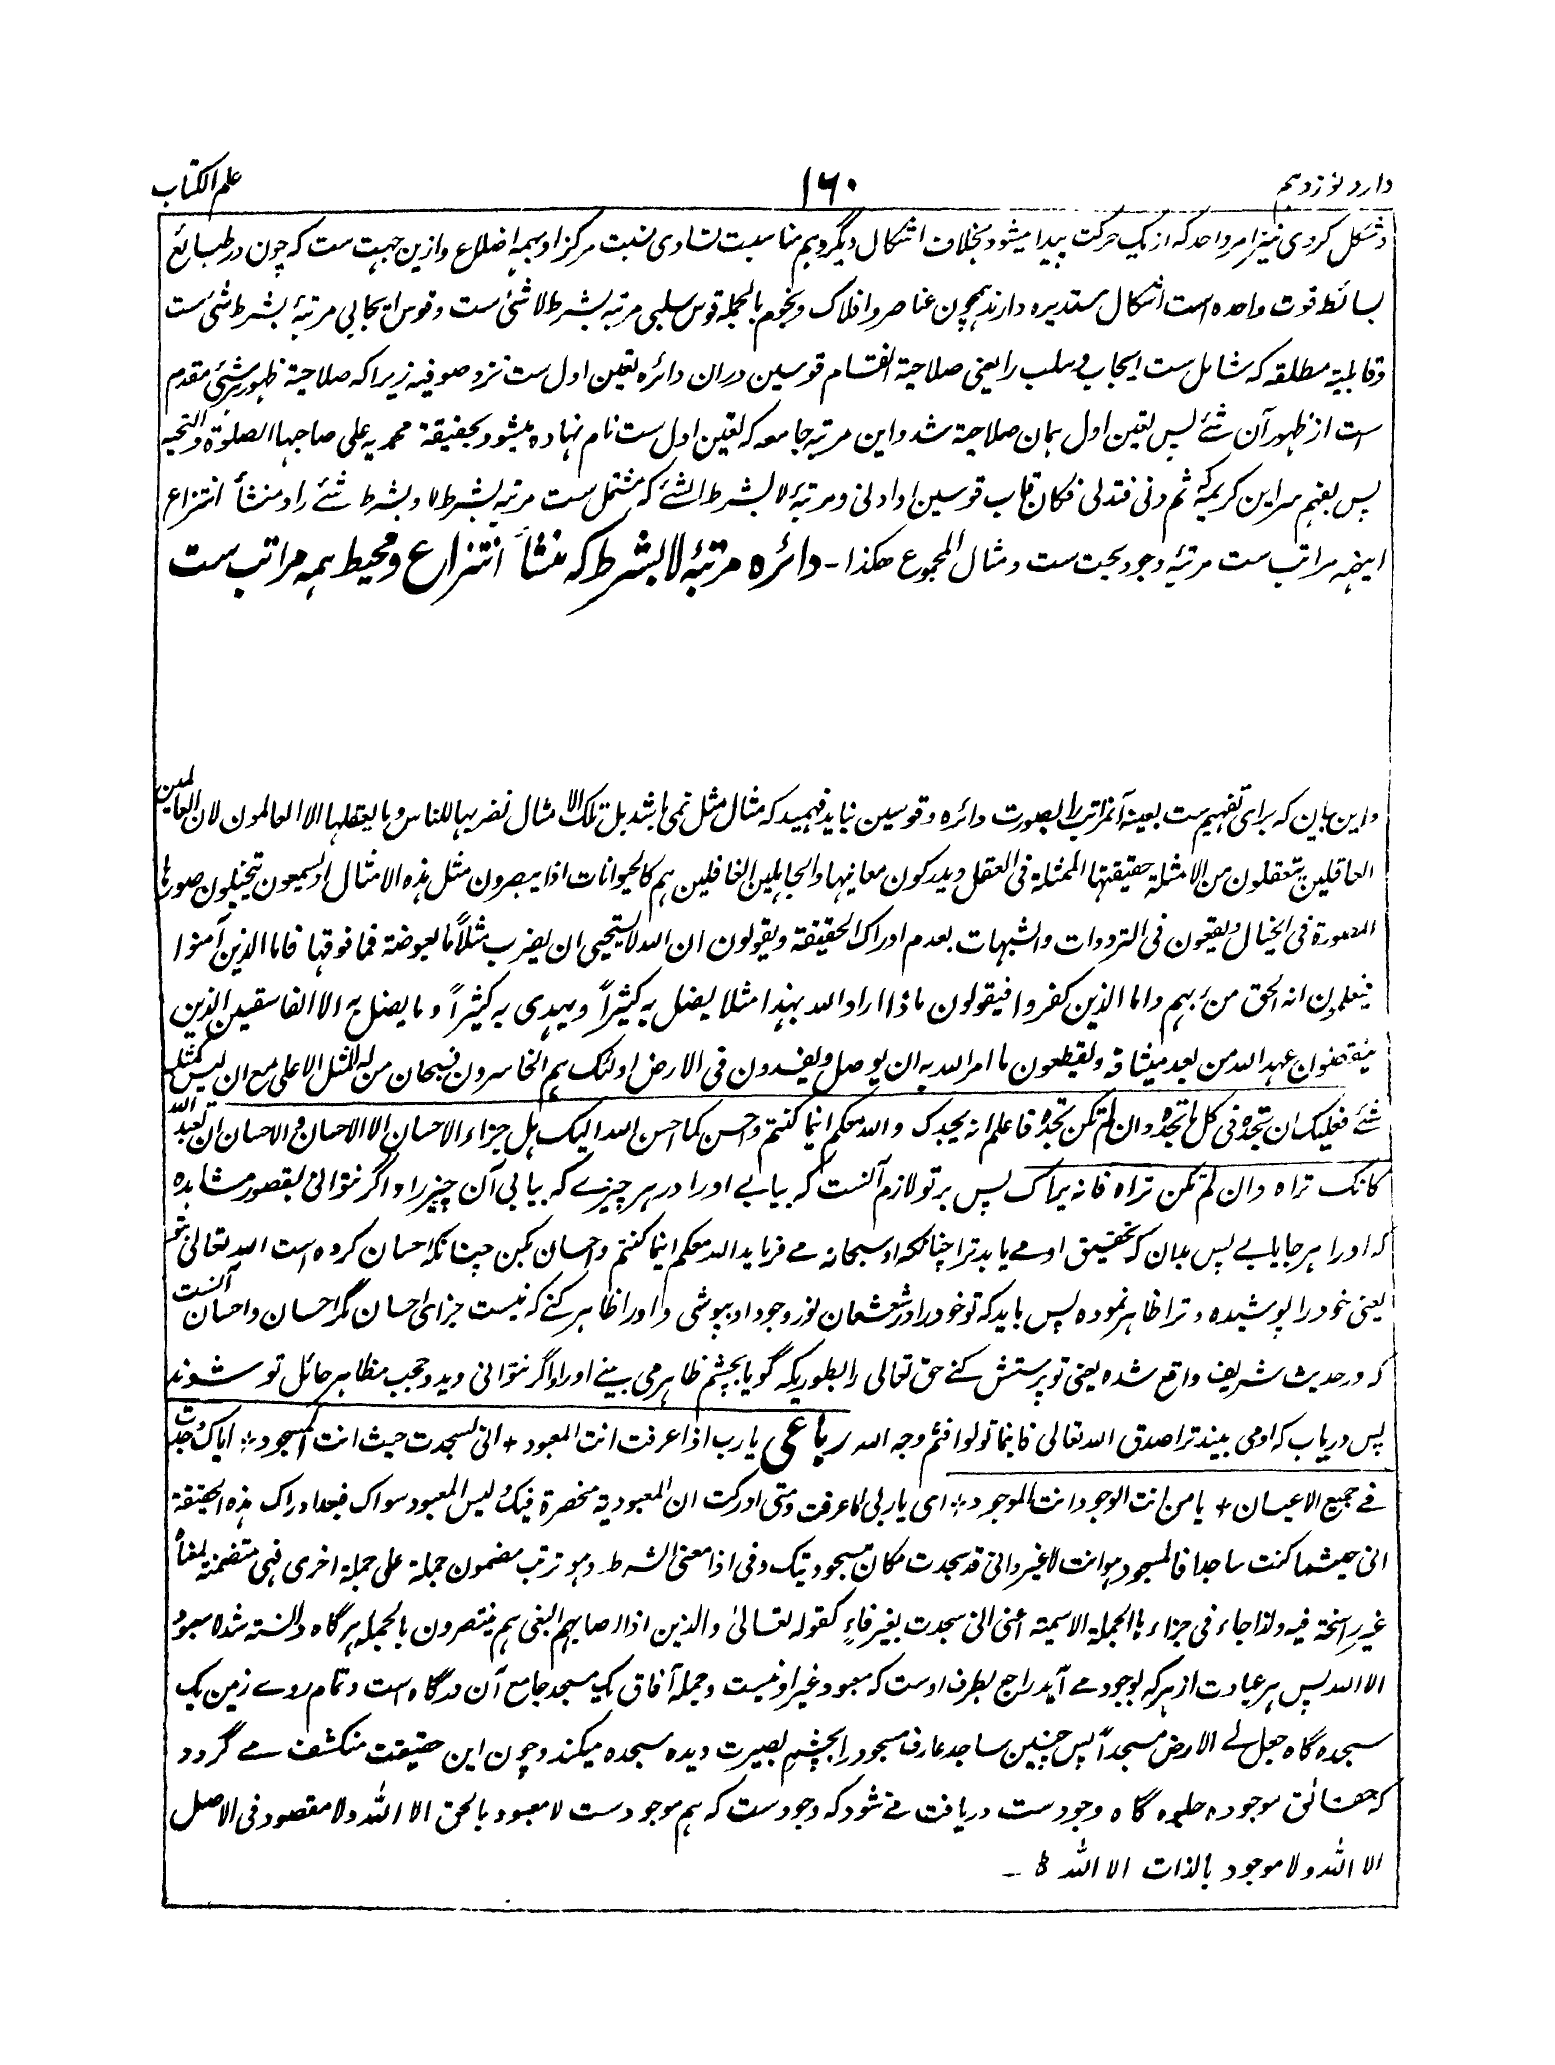 وارد نوزدهم ۱۶۰ علم الکتاب
و شکل کروی نیز امر واحد که از یک حرکت پیدا میشود بخلاف اشکال دیگر و هم مناسبت تساوی نسبت مرکز او بهمه اضلاع و ازین جهت ست که چون در طبائع
بسائط قوت واحده است اشکال مستدیره دارند همچون عناصر و افلاک و نجوم بالجمله قوس سلبی مرتبه بشرط لا شئ ست و قوس ایجابی مرتبۂ بشرط شی ست
و قابلیۃ مطلقه که شامل ست ایجاب و سلب را یعنی صلاحیۃ انقسام قوسین در ان دائره تعین اول ست نزد صوفیه زیرا که صلاحیۃ ظهور هر شئ مقدم
است از ظهور آن شئے پس تعین اول همان صلاحیۃ شد و این مرتبه جامعه که تعین اول ست نام نهاده میشود بحقیقۃ محمدیه علی صاحبها الصلوٰۃ والتحیه
پس بفهم سر این کریمه ثم دنی فتدلی فکان قاب قوسین او ادنی و مرتبۂ لا بشرط الشئے که مشتمل ست مرتبه بشرط لا و بشرط شئے را و منشأ انتزاع
اینهمه مراتب ست مرتبۂ وجود بحت ست و مثال المجموع هکذا - دائره مرتبۂ لا بشرط که منشأ انتزاع و محیط همه مراتب ست
و این بیان که برای تفهیم ست بعینه آنمراتب را بصورت دائره و قوسین نباید فهمید که مثال مثل نمی باشد بل تلک الامثال نضربها للناس و ما یعقلها الا العالمون لان العالمین
العاقلین یتعقلون من الامثلۃ حقیقتها الممثلۃ فی العقل و یدرکون معانیها والجاهلین الغافلین هم کالحیوانات اذا یبصرون مثل هذه الامثال او یسمعون یتخیلون صورها
المصورۃ فی الخیال و یقعون فی الترددات والشبهات بعدم ادراک الحقیقۃ و یقولون ان الله لا یستحیی ان یضرب مثلاً ما بعوضۃ فما فوقها فاما الذین آمنوا
فیعلمون انه الحق من ربهم و اما الذین کفروا فیقولون ماذا اراد الله بهذا مثلا یضل به کثیراً و یهدی به کثیراً و ما یضل به الا الفاسقین الذین
ینقضون عهد الله من بعد میثاقه و یقطعون ما امر الله به ان یوصل و یفسدون فی الارض اولئک هم الخاسرون فسبحان من له المثل الاعلی مع ان لیس کمثله
شئے فعلیک ان تجده فی کل ما تجده و ان لم تکن تجده فاعلم انه یجدک والله معکم اینما کنتم و احسن کما احسن الله الیک هل جزاء الاحسان الا الاحسان و الاحسان ان تعبد الله
کانک تراه و ان لم تکن تراه فانه یراک پس بر تو لازم آنست که بیابے او را در هر چیزے که بیابی آن چیز را و اگر نتوانی بقصور مشاهده
که او را هر جا یابے پس بدان که بتحقیق او مے یابد ترا چنانکه او سبحانه مے فرماید الله معکم اینما کنتم و احسان بکن چنانکه احسان کرده است الله تعالی بتو
یعنی خود را پوشیده و ترا ظاهر نموده پس باید که تو خود را در شعشعان نور وجود او بپوشی و او را ظاهر کنے که نیست جزای احسان مگر احسان و احسان آنست
که در حدیث شریف واقع شده یعنی تو پرستش کنے حق تعالی را بطوریکه گویا بچشم ظاهر می بینے او را و اگر نتوانی دید و حجب مظاهر حائل تو شوند
پس دریاب که او می بیند ترا صدق الله تعالی فاینما تولوا فثم وجه الله رباعی یا رب اذا عرفت انت المعبود + انی لسجدت حیث انت المسجود * ایاک وجدت
فے جمیع الاعیان + یا من انت الوجود انت الموجود * ای یا ربی لما عرفت و متی ادرکت ان المعبودیۃ منحصرۃ فیک و لیس المعبود سواک فبعد ادراک هذه الحقیقۃ
انی حیثما کنت ساجدا فالمسجود هو انت لا غیر و انی قد سجدت مکان مسجودیتک و فی اذا معنی الشرط و هو ترتب مضمون جملۃ علی جملۃ اخری فهی متضمنۃ لمعنا
غیر راسخۃ فیه ولذا جاء فی جزاء ها الجملۃ الاسمیۃ اعنی انی سجدت بغیر فاءٍ کقوله تعالیٰ والذین اذا اصابهم البغی هم ینتصرون بالجمله هر گاه دانسته شد لا معبود
الا الله پس هر عبادت از هر که بوجود مے آید راجع بطرف اوست که معبود غیر او نیست و جمله آفاق یک مسجد جامع آن درگاه است و تمام روے زمین یک
سجده گاه جعل لے الارض مسجداً پس چنین ساجد عارف مسجود را بچشم بصیرت دیده سجده میکند و چون این حقیقت منکشف مے گردد
که حقائق موجوده جلوه گاه وجودست دریافت مے شود که وجودست که هم موجودست لا معبود بالحق الا الله و لا مقصود فی الاصل
الا الله و لا موجود بالذات الا الله